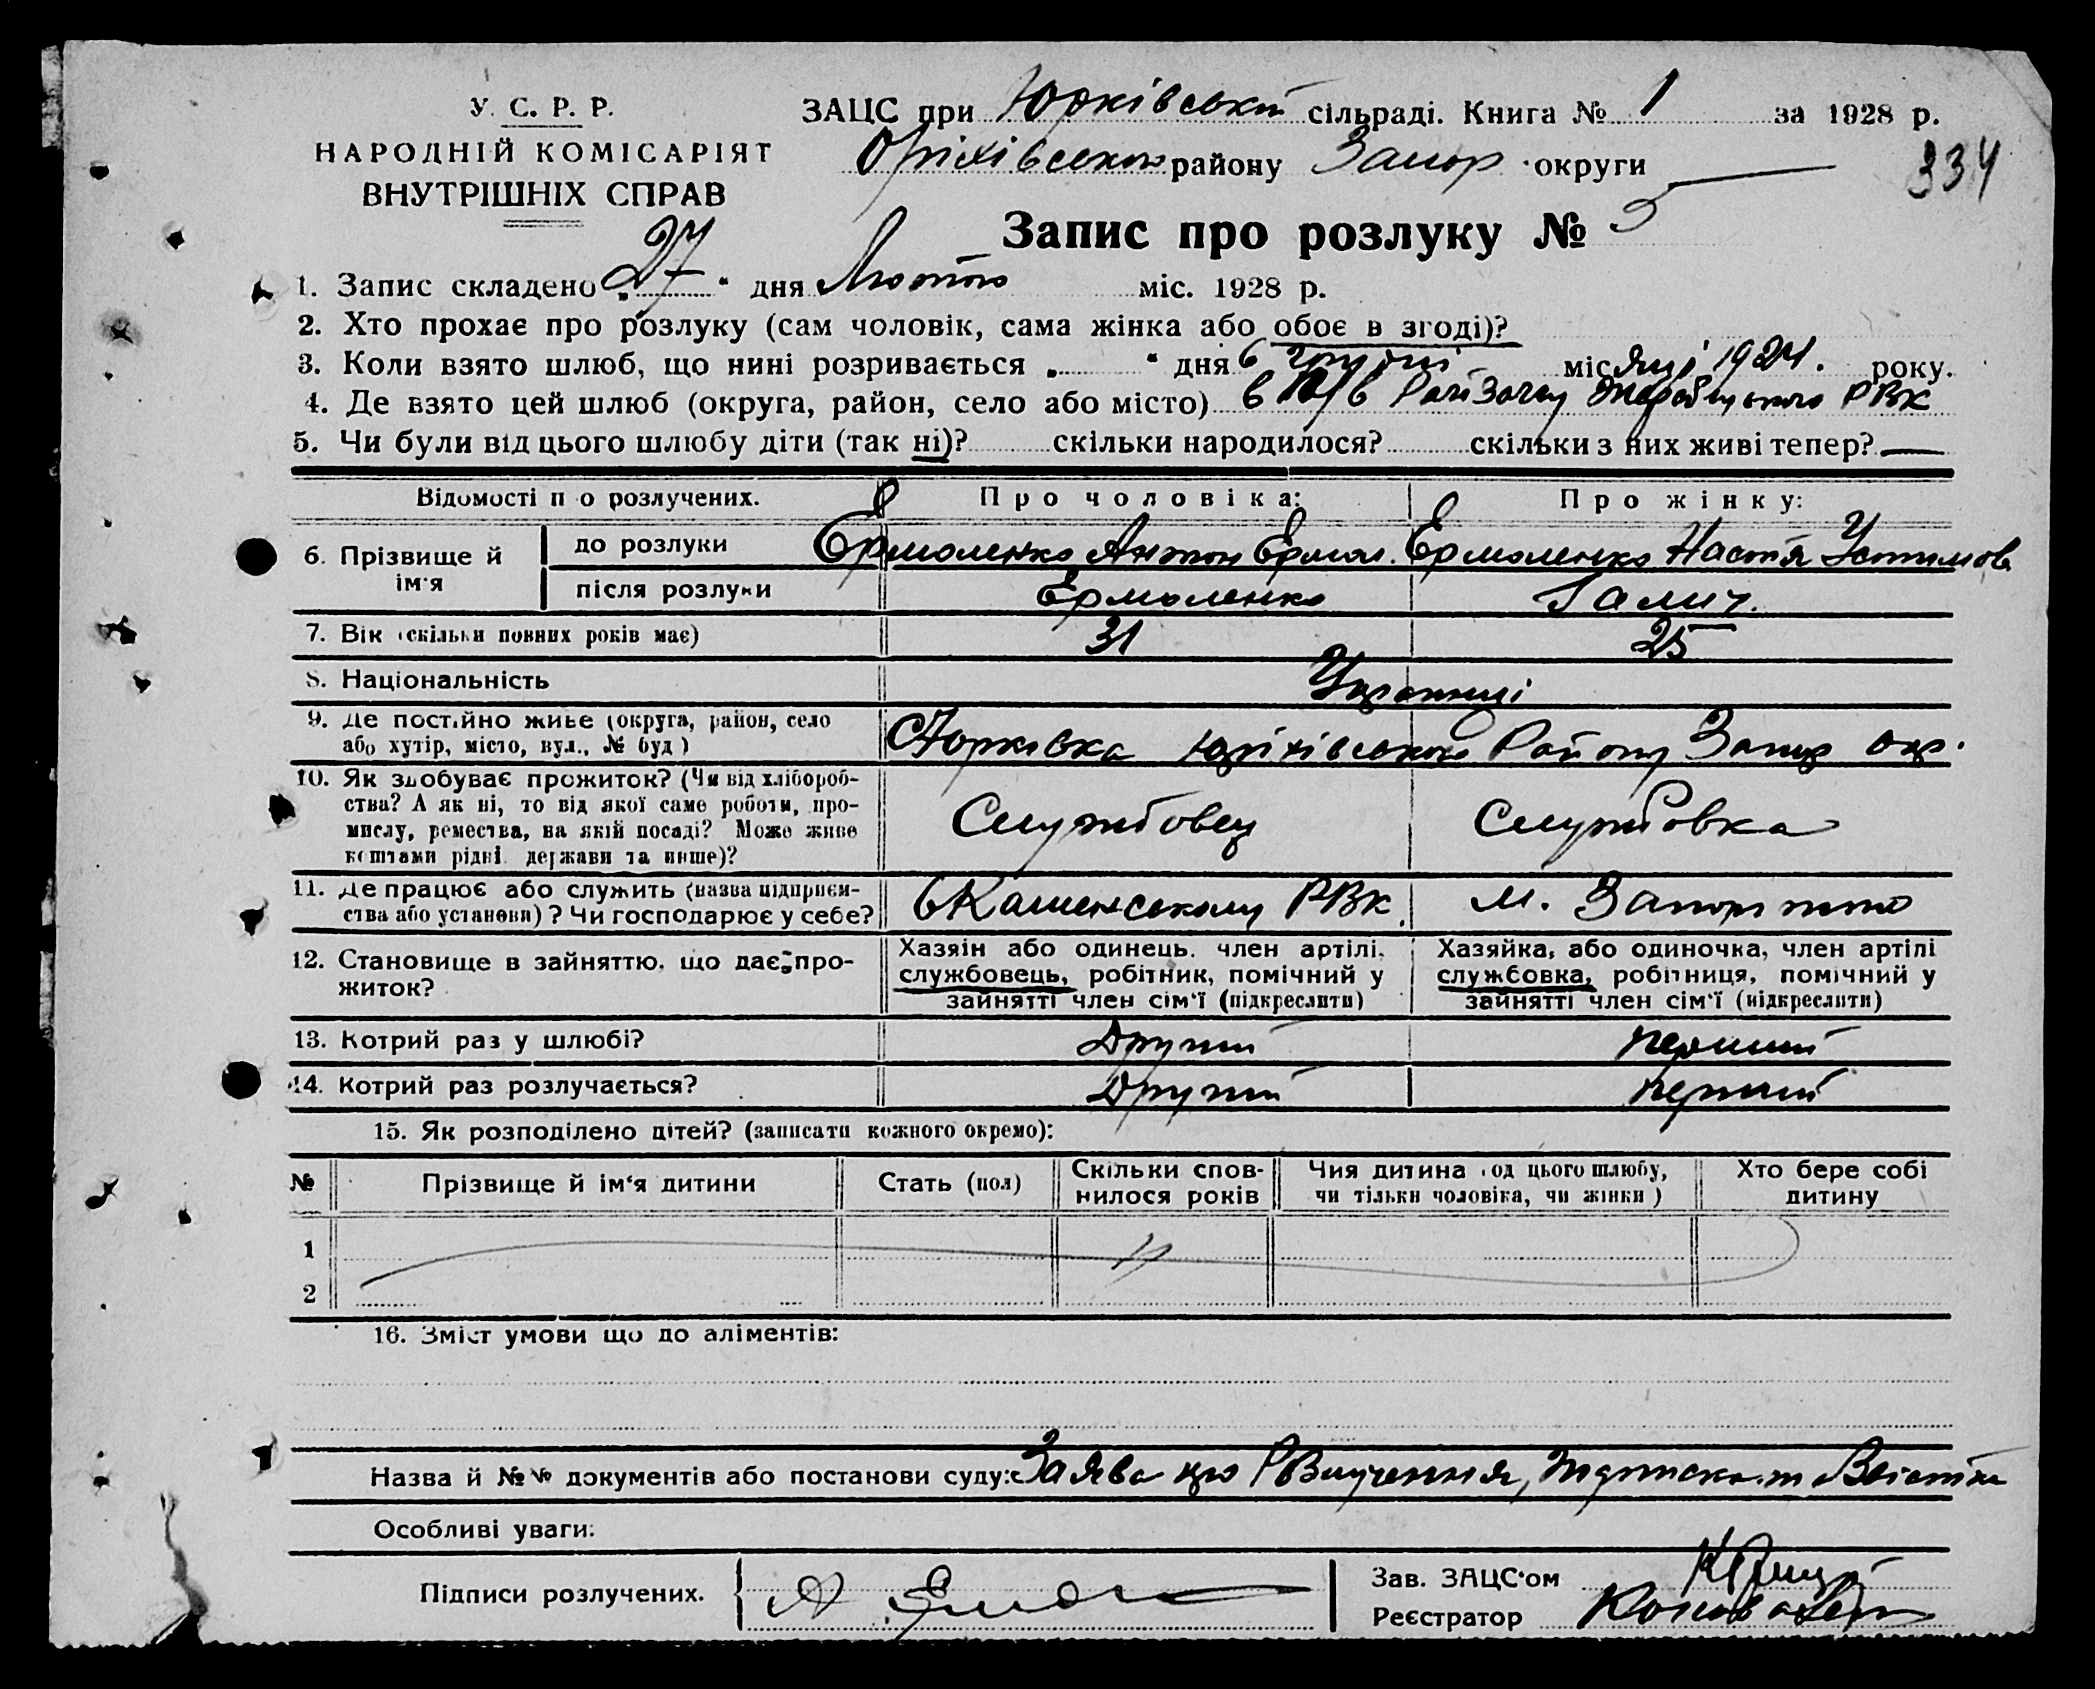 У. С. Р. Р.
НАРОДНІЙ КОМІСАРІЯТ
ВНУТРІШНІХ СПРАВ
ЗАЦС при Юрківській сільраді. Книга № 1 за 1928 р.
Оріхівського району Запор. округи
334
Запис про розлуку № 5
1. Запис складено „27“ дня Лютого міс. 1928 р.
2. Хто прохає про розлуку (сам чоловік, сама жінка або обоє в згоді)?
3. Коли взято шлюб, що нині розривається „ “ дня в грудні місяці 1924. року.
4. Де взято цей шлюб (округа, район, село або місто) в РВК
5. Чи були від цього шлюбу діти (так ні)? скільки народилося? скільки з них живі тепер? —
Відомості п о розлучених. Про чоловіка: Про жінку:
6. Прізвище й ім'я до розлуки Єрмоленко Антон Єрмол. Єрмоленко Настя Устимов.
після розлуки Єрмоленко Галич.
7. Вік (скільки повних років має) 31 25
8. Національність Українці
9. Де постійно живе (округа, район, село
або хутір, місто, вул., № буд.) Юрковка Оріхівського Району Запор окр.
10. Як здобуває прожиток? (Чи від хлібороб-
ства? А як ні, то від якої саме роботи, про-
мислу, ремества, на якій посаді? Може живе
коштами рідні, держави та инше)? Службовец Службовка
11. Де працює або служить (назва підприєм-
ства або установи)? Чи господарює у себе? в Каменському РВК. м. Запоріжжя
12. Становище в зайняттю, що дає про-
житок?
Хазяїн або одинець, член артілі,
службовець, робітник, помічний у
зайнятті член сім'ї (підкреслити)
Хазяйка, або одиночка, член артілі
службовка, робітниця, помічний у
зайнятті член сім'ї (підкреслити)
13. Котрий раз у шлюбі? Другий перший
14. Котрий раз розлучається? Другий перший
15. Як розподілено дітей? (записати кожного окремо):
№ Прізвище й ім'я дитини Стать (пол) Скільки спов-
нилося років Чия дитина (од цього шлюбу,
чи тільки чоловіка, чи жінки) Хто бере собі
дитину
1
2
16. Зміст умови що до аліментів:
Назва й №№ документів або постанови суду: Заява
Особливі уваги:
Підписи розлучених.
Зав. ЗАЦС'ом
Реєстратор